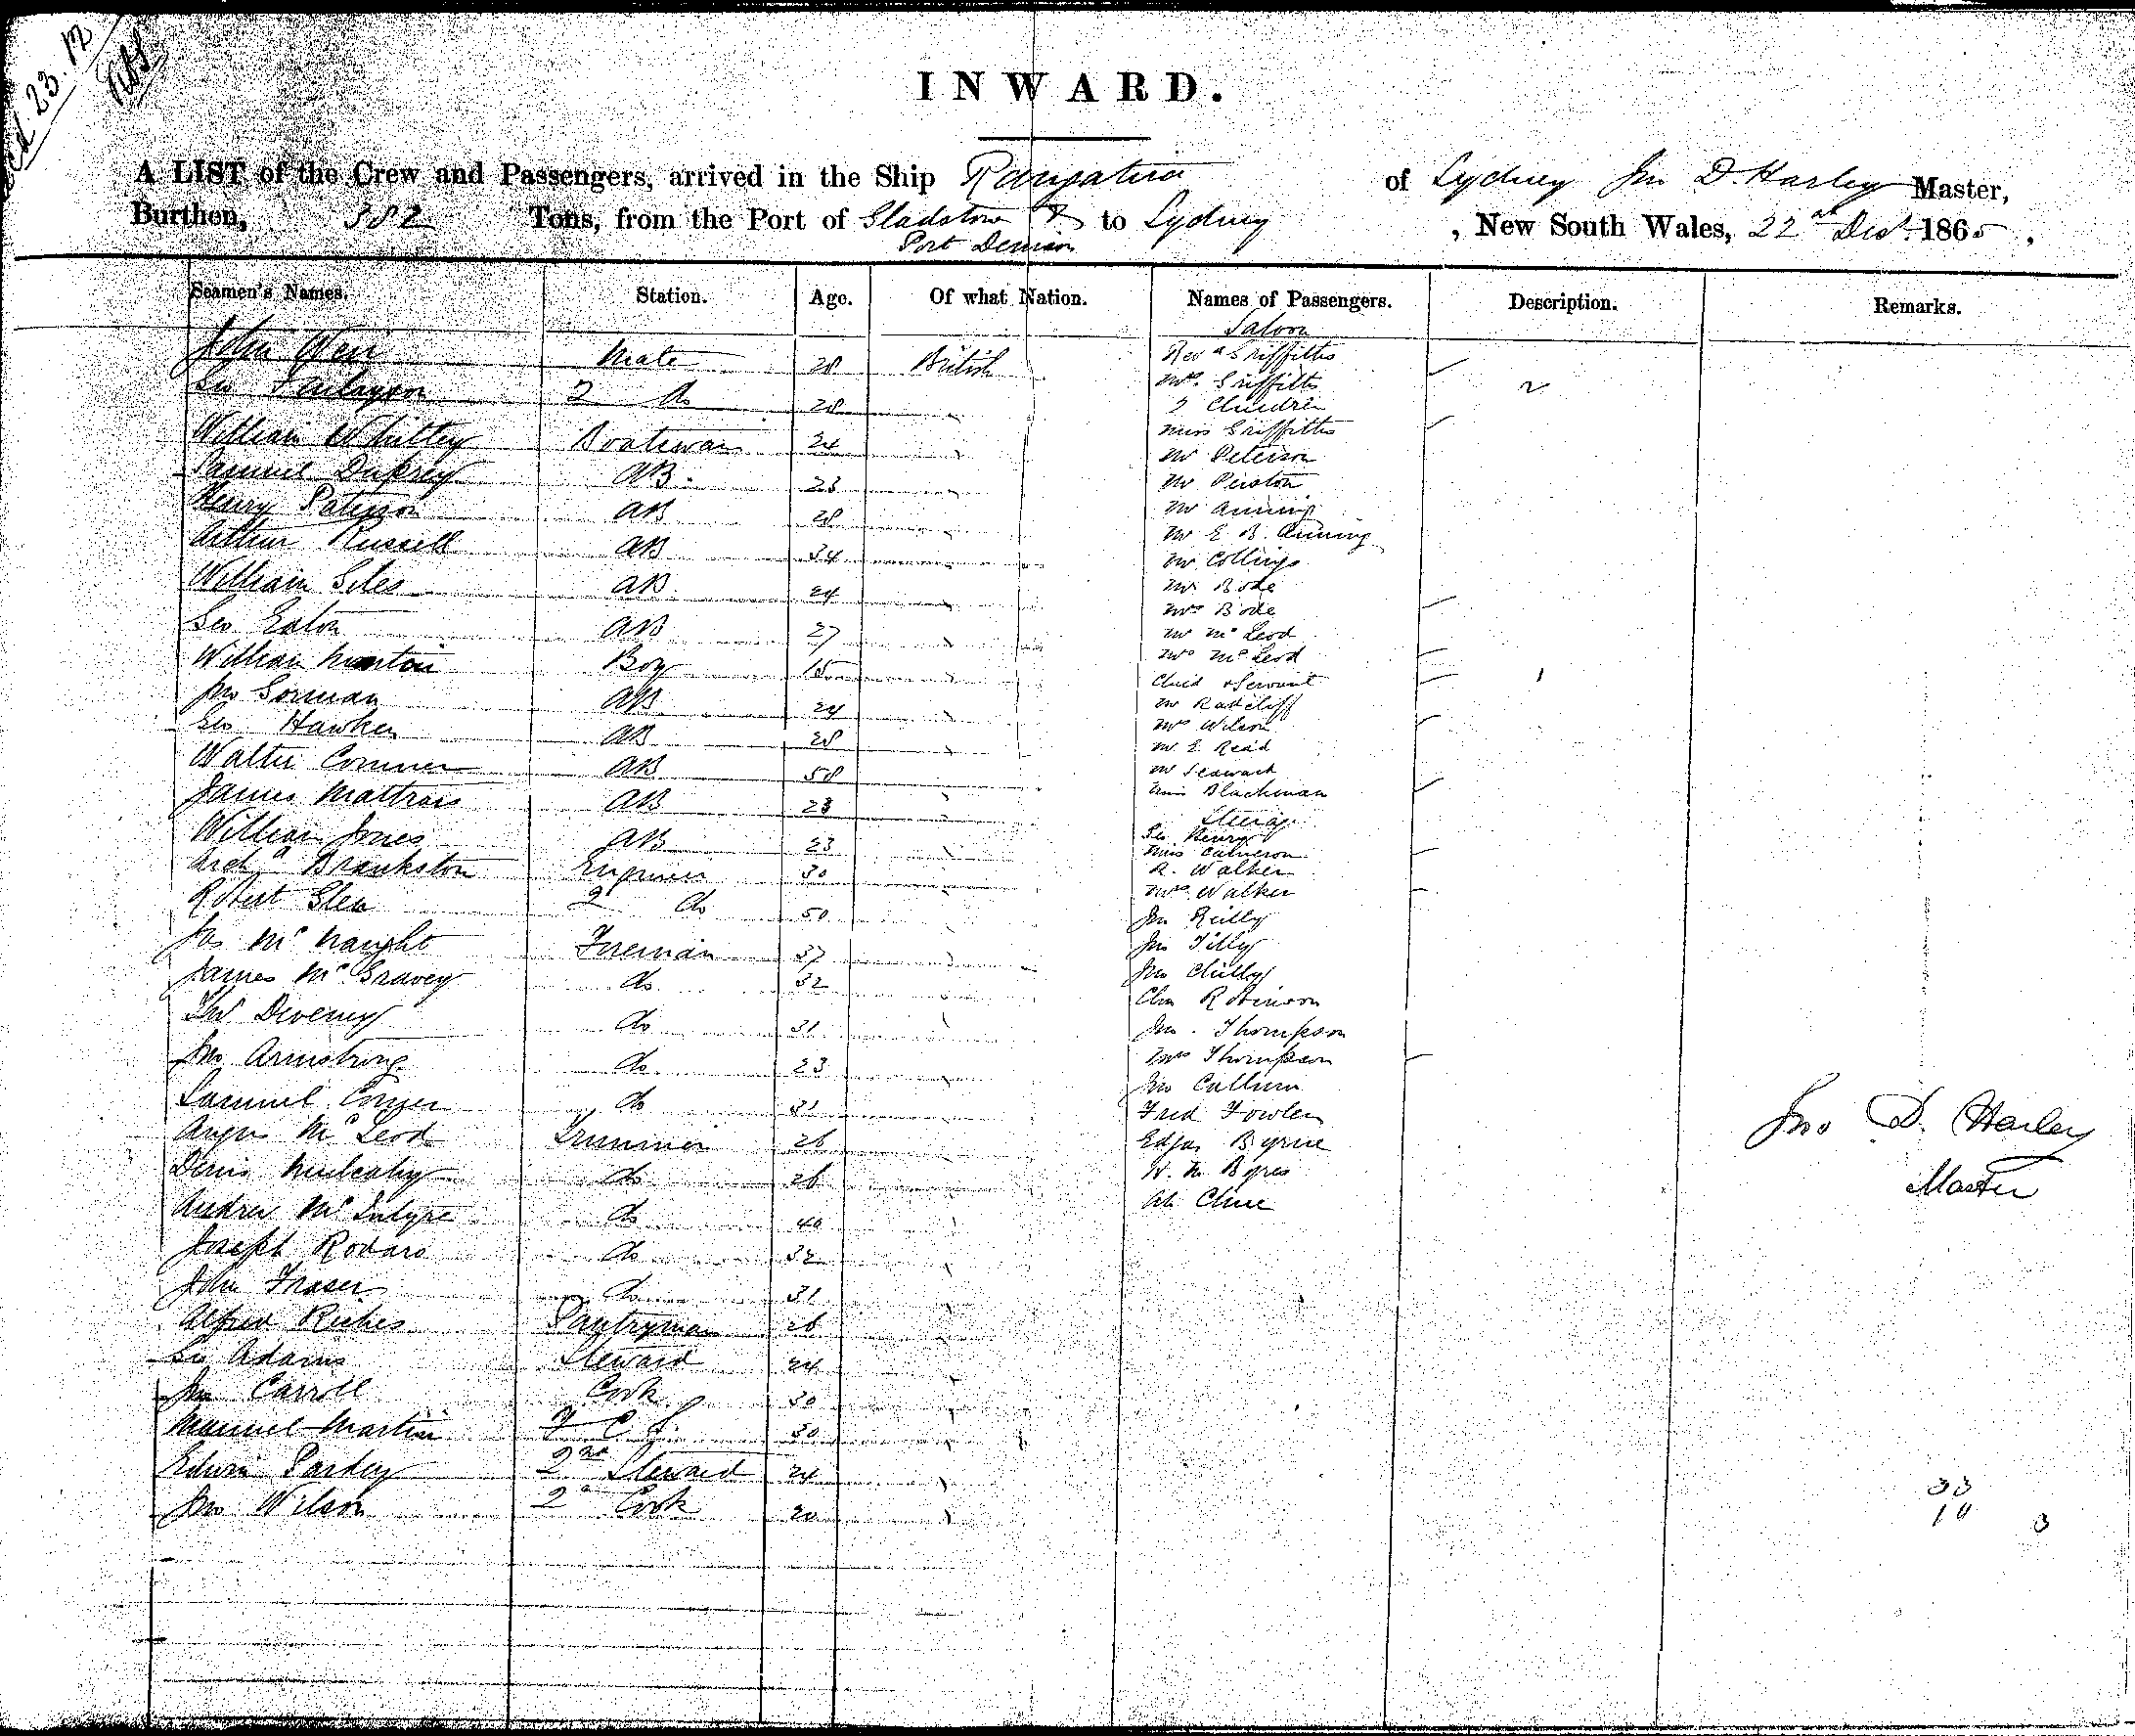 23.12
INWARD.
A LIST of the Crew and Passengers, arrived in the Ship Rangatira of Sydney Jno D. Harley Master,
Burthen, 382 Tons, from the Port of Gladstone & to Sydney , New South Wales, 22nd Decr 1865 ,
Port Denison
Seamen's Names. Station. Age. Of what Nation. Names of Passengers. Description. Remarks.
Saloon
John Weir Mate 28 British Revd Griffiths
Mrs. Griffiths 2
Geo Finlayson 2 do 28 2 Children
Miss Griffiths
William Whitley Boatswain 24 Mr Peterson
Samuel AB. 23 Mr
Henry Paterson AB 28 Mr Anning
Arthur Russell AB 34 Mr E B. Anning
Mr Collings
William Giles AB 24 Mr Bode
Mrs Bode
Geo Eaton AB 27 Mr McLeod
William Boy 15 Mrs McLeod
Child & Servant 1
Jno Gorman AB 24 Mr Radcliff
Geo Hawken AB 28 Mrs Wilson
Mr E. Read
Walter AB 58 Mr Seawack
James AB 23 Miss Blackman
Steerage
William Jones AB 23 Geo Henry
Miss Cameron
Archd Brankston Engineer 30 R. Walker
Mrs Walker
Robert Glen 2 do 50 Jno Reilly
Jas McNaught Fireman 37 Jno Tilly
James McGravey do 32 Jno
Chas Robinson
Thos Deveney do 31 Jno. Thompson
Jno Armstrong do 23 Mrs Thompson
Jno Callum
Samuel do 31 Fred Fowler
Jno D. Harley
Angus McLeod Trimmer 26 Edgar Byrne
Denis Mulcahy do 26 H. M. Byres
Master
Andrew McIntyre do 40 Ah Chue
Joseph Rodaro do 32
John Fraser do 31
Alfred Riches Pantryman 26
Geo Adams Steward 24
Jno Carroll Cook 30
Manuel Martin F C S. 30
Edwin Pardey 2nd Steward 24
33
Jno Wilson 2d Cook 20
14 3